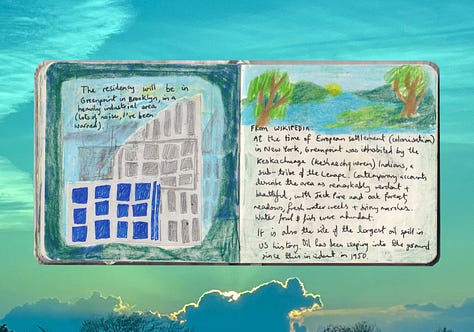 The residency will be in
Greenpoint in Brooklyn, in a
heavily industrial area
(lots of noise, I've been
warned).
FROM WIKIPEDIA:
At the time of European settlement (colonisation)
in New York, Greenpoint was inhabited by the
Keskachauge (Keshaechqueren) Indians, a
sub-tribe of the Lenape. Contemporary accounts
describe the area as remarkably verdant &
beautiful, with Jack Pine and oak forest,
meadows, fresh water creeks & briny marshes.
Water fowl & fish were abundant.
It is also the site of the largest oil spill in
US history. Oil has been seeping into the ground
since this incident in 1950.